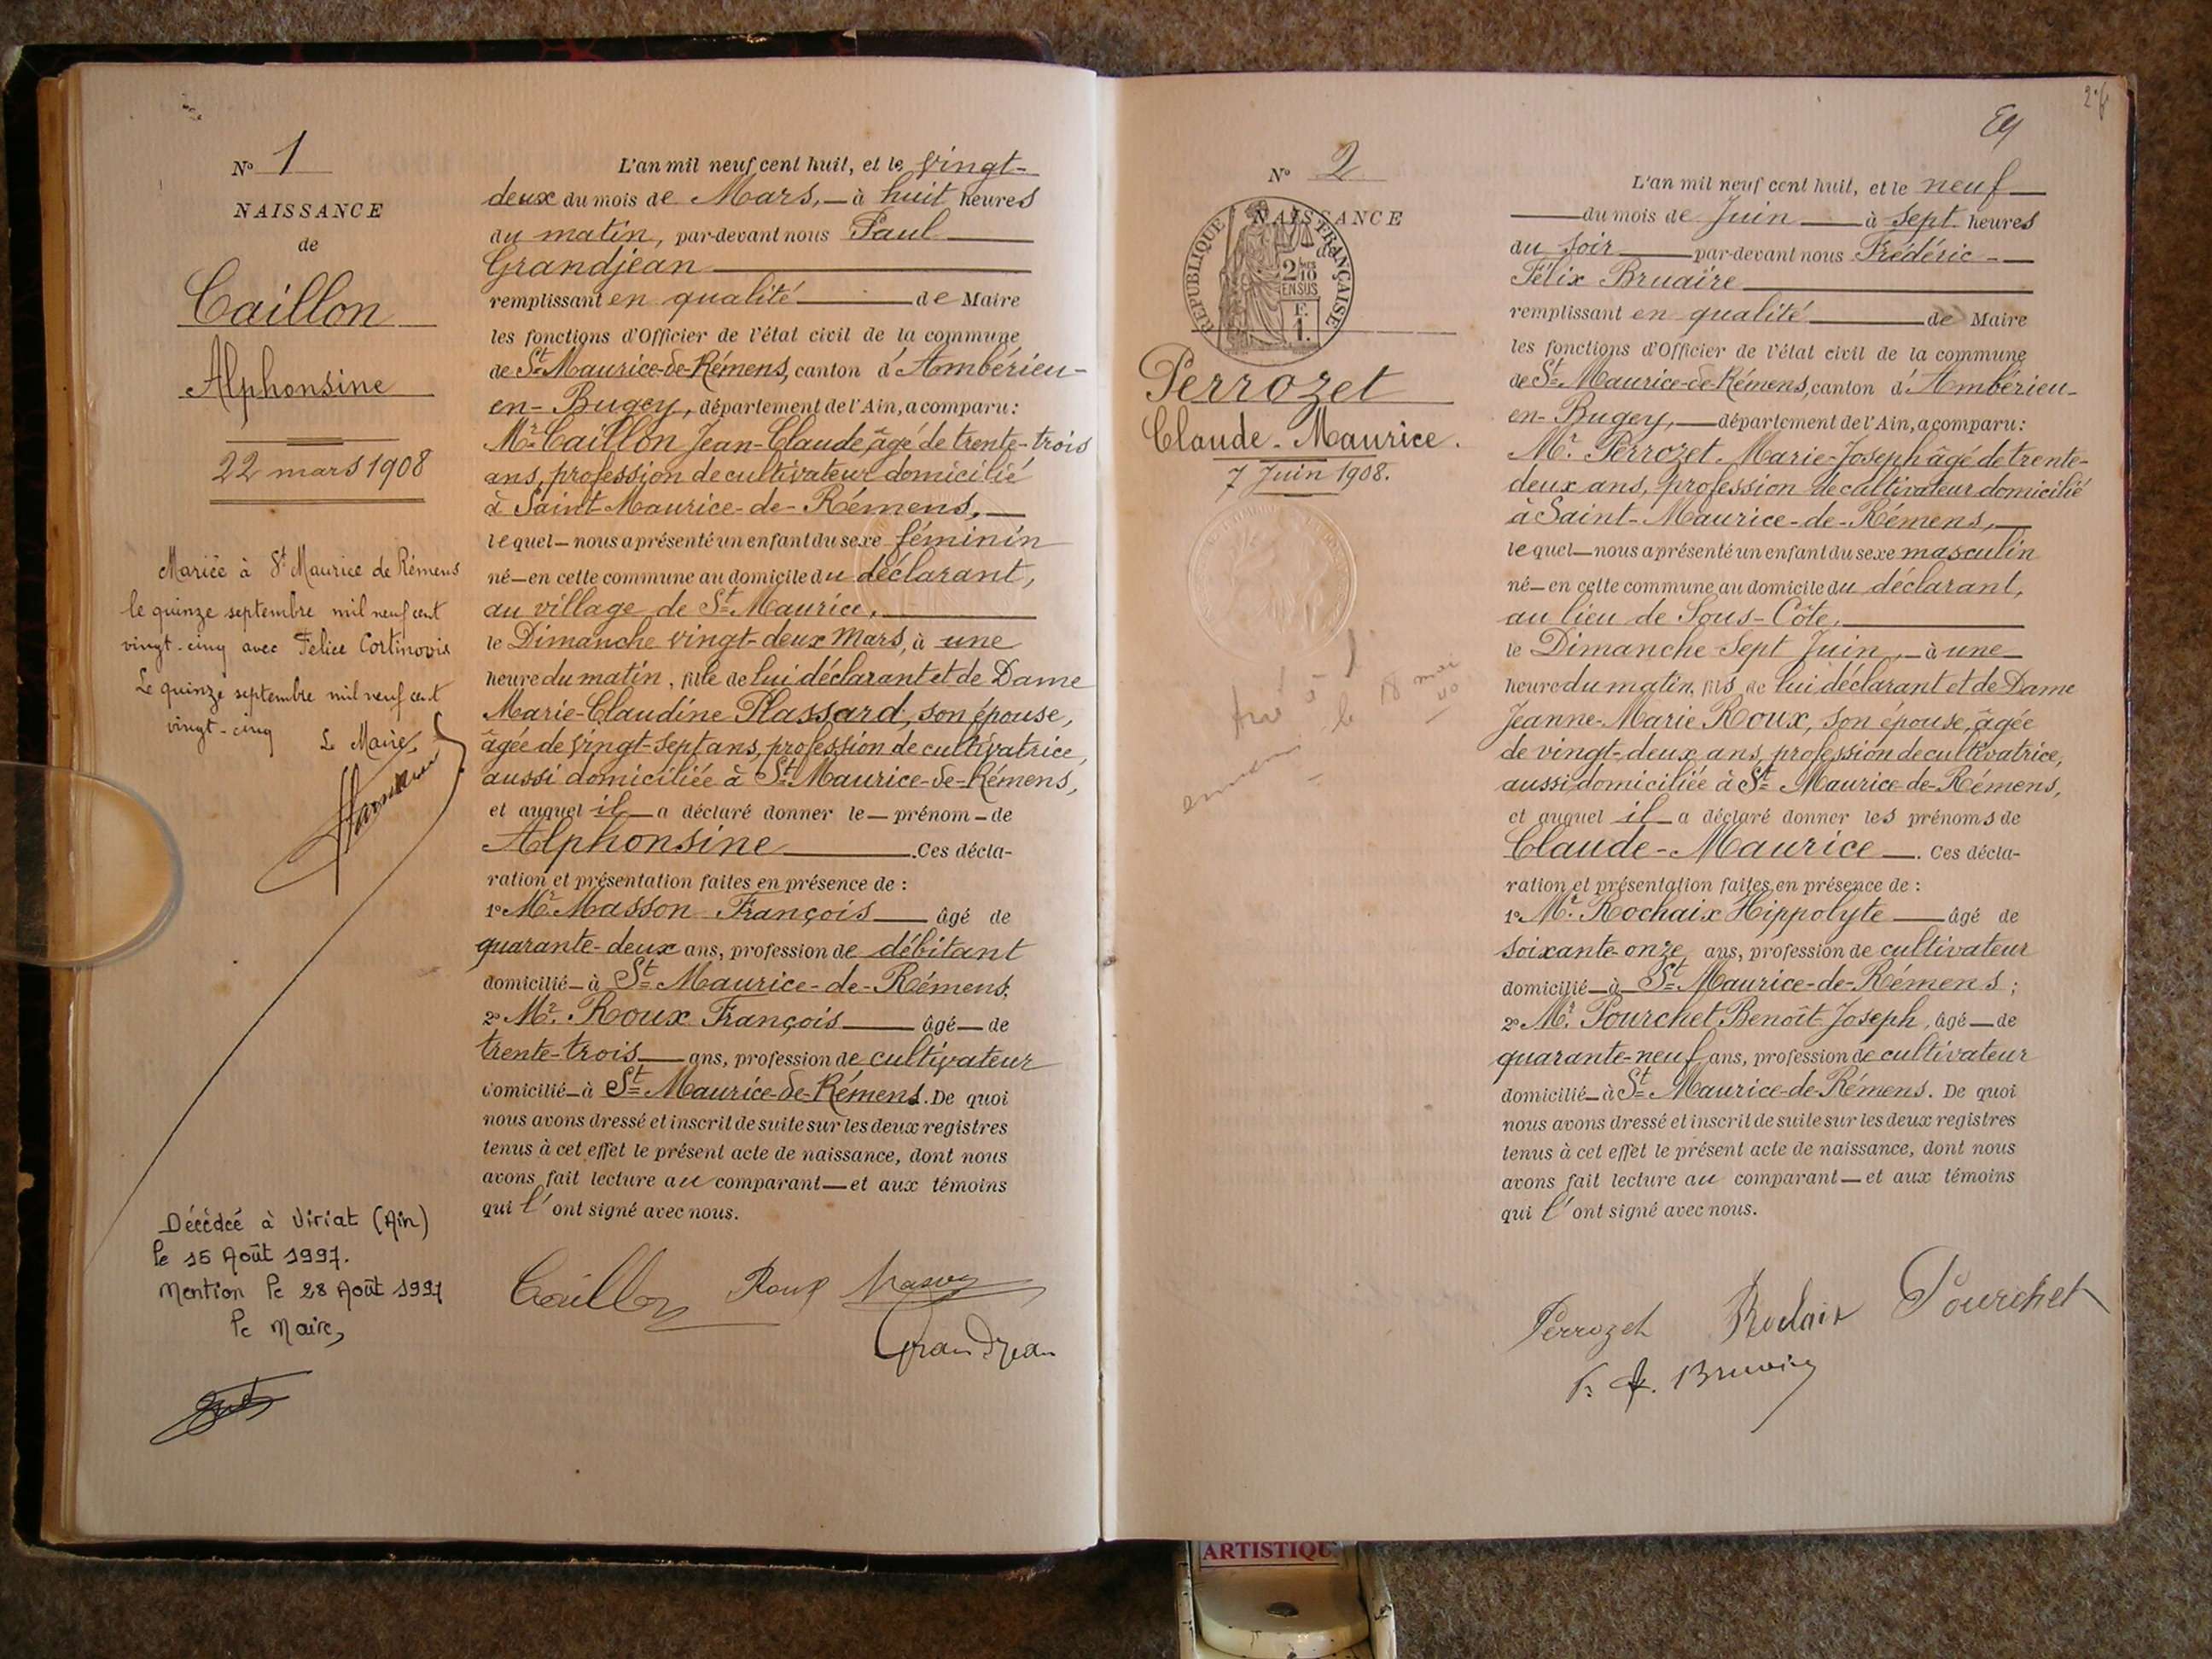 N° 1
NAISSANCE
de
Caillon
Alphonsine
22 mars 1908
Mariée à St Maurice de Rémens
le quinze septembre mil neuf cent
vingt-cinq avec Felice Cortinovis
Le quinze septembre mil neuf cent
vingt-cinq Le Maire,
Décédée à Viriat (Ain)
le 15 Août 1997.
Mention le 28 Août 1997
le Maire,
L'an mil neuf cent huit, et le vingt-
deux du mois de Mars, — à huit heures
du matin, par-devant nous Paul
Grandjean
remplissant en qualité de Maire
les fonctions d'Officier de l'état civil de la commune
de St Maurice-de-Rémens, canton d'Ambérieu-
en-Bugey, département de l'Ain, a comparu :
Mr Caillon Jean-Claude, âgé de trente-trois
ans, profession de cultivateur domicilié
à Saint-Maurice-de-Rémens, —
lequel — nous a présenté un enfant du sexe féminin
né — en cette commune au domicile du déclarant,
au village de St Maurice,
le Dimanche vingt-deux Mars, à une
heure du matin, fille de lui déclarant et de Dame
Marie-Claudine Plassard, son épouse,
âgée de vingt-sept ans, profession de cultivatrice,
aussi domiciliée à St Maurice-de-Rémens,
et auquel il — a déclaré donner le — prénom — de
Alphonsine . Ces décla-
ration et présentation faites en présence de :
1° Mr Masson François — âgé de
quarante-deux ans, profession de débitant
domicilié — à St Maurice-de-Rémens;
2° Mr. Roux François — âgé — de
trente-trois — ans, profession de cultivateur
domicilié — à St Maurice-de-Rémens. De quoi
nous avons dressé et inscrit de suite sur les deux registres
tenus à cet effet le présent acte de naissance, dont nous
avons fait lecture au comparant — et aux témoins
qui l'ont signé avec nous.
Caillon Roux Masson
Grandjean
N° 2
NAISSANCE
de
RÉPUBLIQUE FRANÇAISE
2/10
EN SUS
F.
1.
Perrozet
Claude-Maurice.
7 Juin 1908.
le 18 mai
40
L'an mil neuf cent huit, et le neuf
— du mois de Juin — à sept heures
du soir — par-devant nous Frédéric
Félix Bruaire
remplissant en qualité de Maire
les fonctions d'Officier de l'état civil de la commune
de St Maurice-de-Rémens, canton d'Ambérieu-
en-Bugey, — département de l'Ain, a comparu :
Mr. Perrozet Marie-Joseph âgé de trente-
deux ans, profession de cultivateur domicilié
à Saint-Maurice-de-Rémens, —
lequel — nous a présenté un enfant du sexe masculin
né — en cette commune au domicile du déclarant,
au lieu de Sous-Côte,
le Dimanche sept Juin, — à une
heure du matin, fils de lui déclarant et de Dame
Jeanne-Marie Roux, son épouse, âgée
de vingt-deux ans, profession de cultivatrice,
aussi domiciliée à St Maurice-de-Rémens,
et auquel il — a déclaré donner les prénoms de
Claude-Maurice — . Ces décla-
ration et présentation faites en présence de :
1° Mr. Rochaix Hippolyte — âgé de
soixante-onze ans, profession de cultivateur
domicilié — à St Maurice-de-Rémens ;
2° Mr. Pourchet Benoît-Joseph, âgé — de
quarante-neuf ans, profession de cultivateur
domicilié — à St Maurice-de-Rémens. De quoi
nous avons dressé et inscrit de suite sur les deux registres
tenus à cet effet le présent acte de naissance, dont nous
avons fait lecture au comparant — et aux témoins
qui l'ont signé avec nous.
Perrozet Rochaix Pourchet
ARTISTIQU